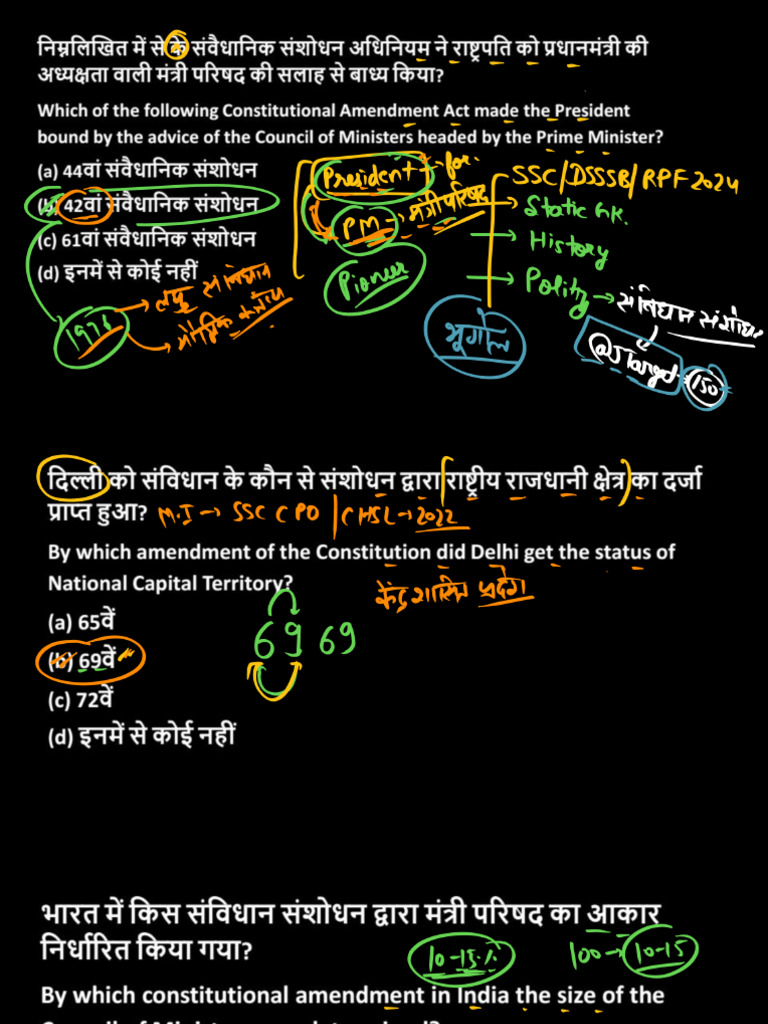 निम्नलिखित में से के संवैधानिक संशोधन अधिनियम ने राष्ट्रपति को प्रधानमंत्री की
अध्यक्षता वाली मंत्री परिषद की सलाह से बाध्य किया?
Which of the following Constitutional Amendment Act made the President
bound by the advice of the Council of Ministers headed by the Prime Minister?
(a) 44वां संवैधानिक संशोधन
(b) 42वां संवैधानिक संशोधन
(c) 61वां संवैधानिक संशोधन
(d) इनमें से कोई नहीं
President → for.
PM → मंत्री परिषद
Pioneer
SSC/DSSSB/RPF 2024
→ Static GK.
→ History
→ Polity → संविधान संशोधन
भूगोल
@JTarget 150
1976
→ लघु संविधान
→ मौलिक कर्तव्य
दिल्ली को संविधान के कौन से संशोधन द्वारा राष्ट्रीय राजधानी क्षेत्र का दर्जा
प्राप्त हुआ? M.I → SSC CPO | CHSL → 2022
By which amendment of the Constitution did Delhi get the status of
National Capital Territory?
केंद्र शासित प्रदेश
(a) 65वें
(b) 69वें
(c) 72वें
(d) इनमें से कोई नहीं
69 69
भारत में किस संविधान संशोधन द्वारा मंत्री परिषद का आकार
निर्धारित किया गया?
10-15% 100 → 10-15
By which constitutional amendment in India the size of the